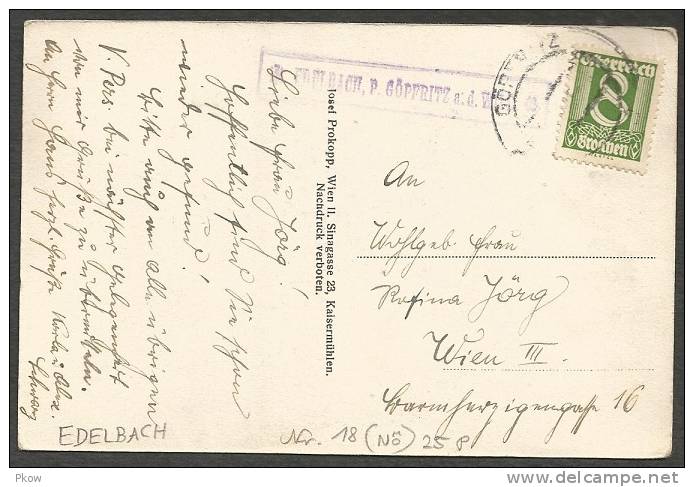 EDELBACH, P. GÖPFRITZ a. d.
GÖPFRITZ
Österreich
8
Groschen
Josef Prokopp, Wien II. Sinagasse 23, Kaisermühlen.
Nachdruck verboten.
Liebe Frau Jörg!
Hoffentlich sind Sie schon
wieder gesund!
Bitte auch an alle übrigen
V. Pers. bei nächster Gelegenheit
von mir Grüße zu übermitteln.
An Herrn Hans herzl. Grüße
Schwarz
An
Wohlgeb. Frau
Rosina Jörg
Wien III.
Barmherzigengasse 16
EDELBACH
Nr. 18 (NÖ) 25 P
Pkow
www.delcampe.net